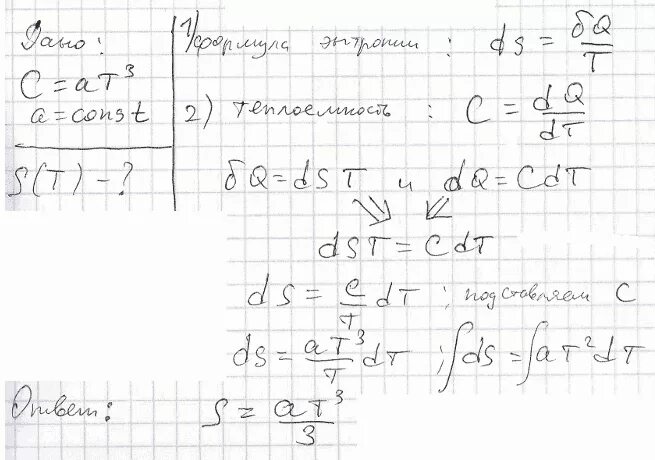 Дано:
C = aT³
a = const
S(T) - ?
1) формула энтропии : dS = δQ/T
2) теплоемкость : C = dQ/dT
δQ = dS T и dQ = CdT
dST = CdT
dS = C/T dT ; подставляем C
dS = aT³/T dT ; ∫dS = ∫aT²dT
Ответ: S = aT³/3